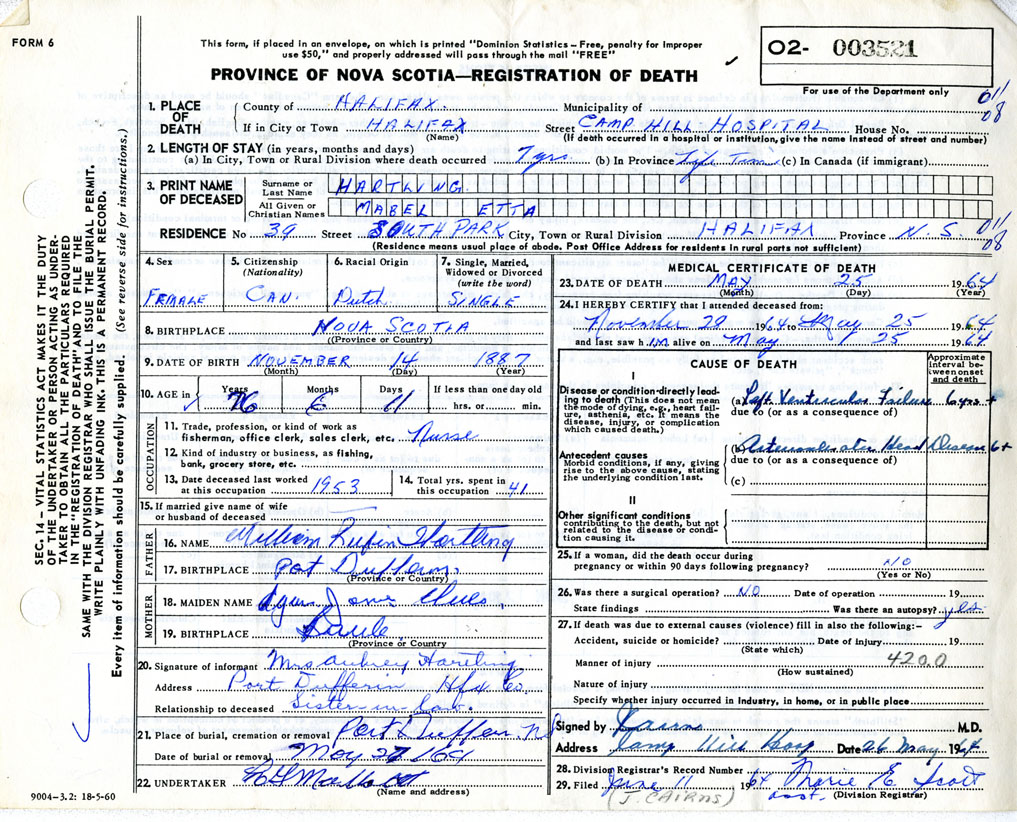 FORM 6
This form, if placed in an envelope, on which is printed "Dominion Statistics – Free, penalty for improper
use $50," and properly addressed will pass through the mail "FREE"
PROVINCE OF NOVA SCOTIA—REGISTRATION OF DEATH
O2- 003521
For use of the Department only
011
08
1. PLACE OF DEATH
County of HALIFAX. Municipality of
If in City or Town HALIFAX Street CAMP HILL HOSPITAL House No.
(Name) (If death occurred in hospital or institution, give the name instead of street and number)
2. LENGTH OF STAY (in years, months and days)
(a) In City, Town or Rural Division where death occurred 7 yrs. (b) In Province Life Time (c) In Canada (if immigrant)
3. PRINT NAME OF DECEASED
Surname or Last Name HARTLING
All Given or Christian Names MABEL ETTA
RESIDENCE No 39 Street SOUTH PARK City, Town or Rural Division HALIFAX Province N. S.
011
08
(Residence means usual place of abode. Post Office Address for residents in rural parts not sufficient)
4. Sex
FEMALE
5. Citizenship (Nationality)
CAN.
6. Racial Origin
Dutch
7. Single, Married, Widowed or Divorced (write the word)
SINGLE
8. BIRTHPLACE NOVA SCOTIA
(Province or Country)
9. DATE OF BIRTH NOVEMBER 14 1887
(Month) (Day) (Year)
10. AGE in Years Months Days If less than one day old
76 6 11 hrs. or min.
OCCUPATION
11. Trade, profession, or kind of work as
fisherman, office clerk, sales clerk, etc. Nurse
12. Kind of industry or business, as fishing,
bank, grocery store, etc.
13. Date deceased last worked
at this occupation 1953
14. Total yrs. spent in
this occupation 41
15. If married give name of wife
or husband of deceased
FATHER
16. NAME William Rufin Hartling
17. BIRTHPLACE Port Dufferin.
(Province or Country)
MOTHER
18. MAIDEN NAME Jane
19. BIRTHPLACE
(Province or Country
20. Signature of informant Mrs Aubrey Hartling
Address Port Dufferin Hfx Co.
Relationship to deceased Sister in law.
21. Place of burial, cremation or removal Port Dufferin NS
Date of burial or removal May 27/64
22. UNDERTAKER
(Name and address)
9004-3.2: 18-5-60
MEDICAL CERTIFICATE OF DEATH
23. DATE OF DEATH MAY 25 1964
(Month) (Day) (Year)
24. I HEREBY CERTIFY that I attended deceased from:
November 29 1964 to May 25 1964
and last saw h im alive on May 25 1964
CAUSE OF DEATH
Approximate interval between onset and death
I
Disease or condition directly leading to death (This does not mean the mode of dying, e.g., heart failure, asthenia, etc. It means the disease, injury, or complication which caused death.)
(a) Left Ventricular Failure 6 yrs +
due to (or as a consequence of)
Antecedent causes
Morbid conditions, if any, giving rise to the above cause, stating the underlying condition last.
(b) Heart Disease 6+
due to (or as a consequence of)
(c)
II
Other significant conditions
contributing to the death, but not related to the disease or condition causing it.
25. If a woman, did the death occur during
pregnancy or within 90 days following pregnancy? NO
(Yes or No)
26. Was there a surgical operation? NO Date of operation 19
State findings Was there an autopsy? yes
27. If death was due to external causes (violence) fill in also the following:–
Accident, suicide or homicide? Date of injury 19
(State which)
Manner of injury 4200
(How sustained)
Nature of injury
Specify whether injury occurred in industry, in home, or in public place
Signed by Cairns M.D.
Address Camp Hill Hosp Date 26 May 1964
28. Division Registrar's Record Number
29. Filed June 11 1964 Marie E. Scott
(J. CAIRNS) asst. (Division Registrar)
SEC. 14 – VITAL STATISTICS ACT MAKES IT THE DUTY
OF THE UNDERTAKER OR PERSON ACTING AS UNDER-
TAKER TO OBTAIN ALL THE PARTICULARS REQUIRED
IN THE "REGISTRATION OF DEATH" AND TO FILE THE
SAME WITH THE DIVISION REGISTRAR WHO SHALL ISSUE THE BURIAL PERMIT.
WRITE PLAINLY WITH UNFADING INK. THIS IS A PERMANENT RECORD.
Every item of information should be carefully supplied. (See reverse side for instructions.)